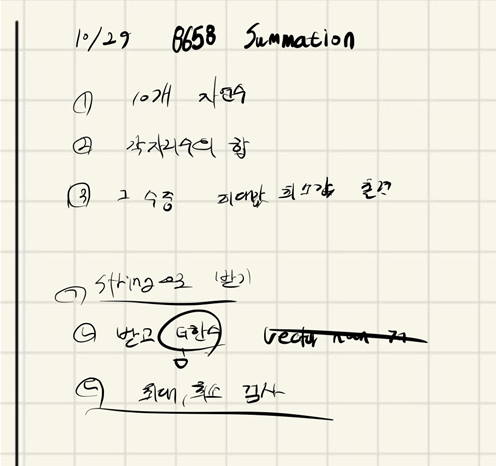 10/29 8658 Summation
① 10개 자연수
② 각자리수의 합
③ 그 수중 최대값 최소값 출력
㉠ string으로 받기
㉡ 받고 더한수
㉢ 최대, 최소 검사